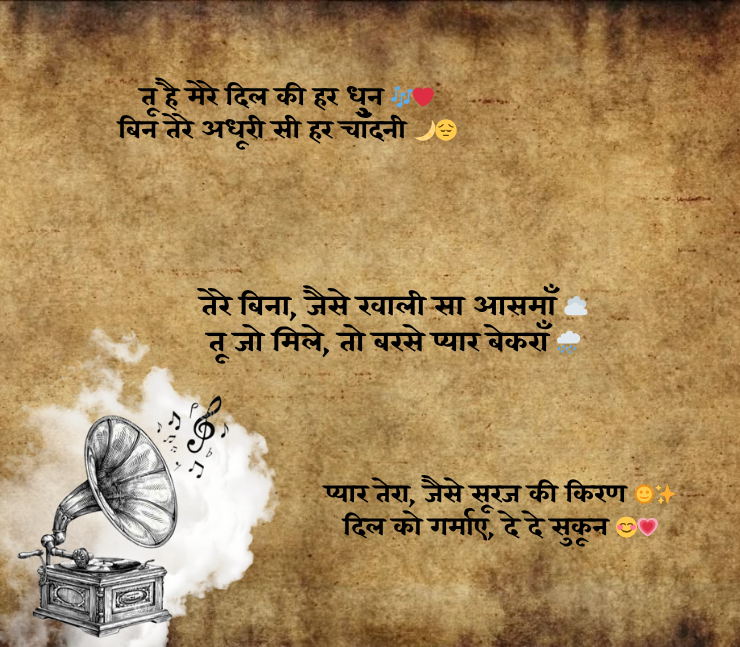 तू है मेरे दिल की हर धुन 🎶❤️
बिन तेरे अधूरी सी हर चाँदनी 🌙😔
तेरे बिना, जैसे खाली सा आसमाँ ☁️
तू जो मिले, तो बरसे प्यार बेकराँ 🌧️
प्यार तेरा, जैसे सूरज की किरण 🌞✨
दिल को गर्माए, दे दे सुकून 😊💗